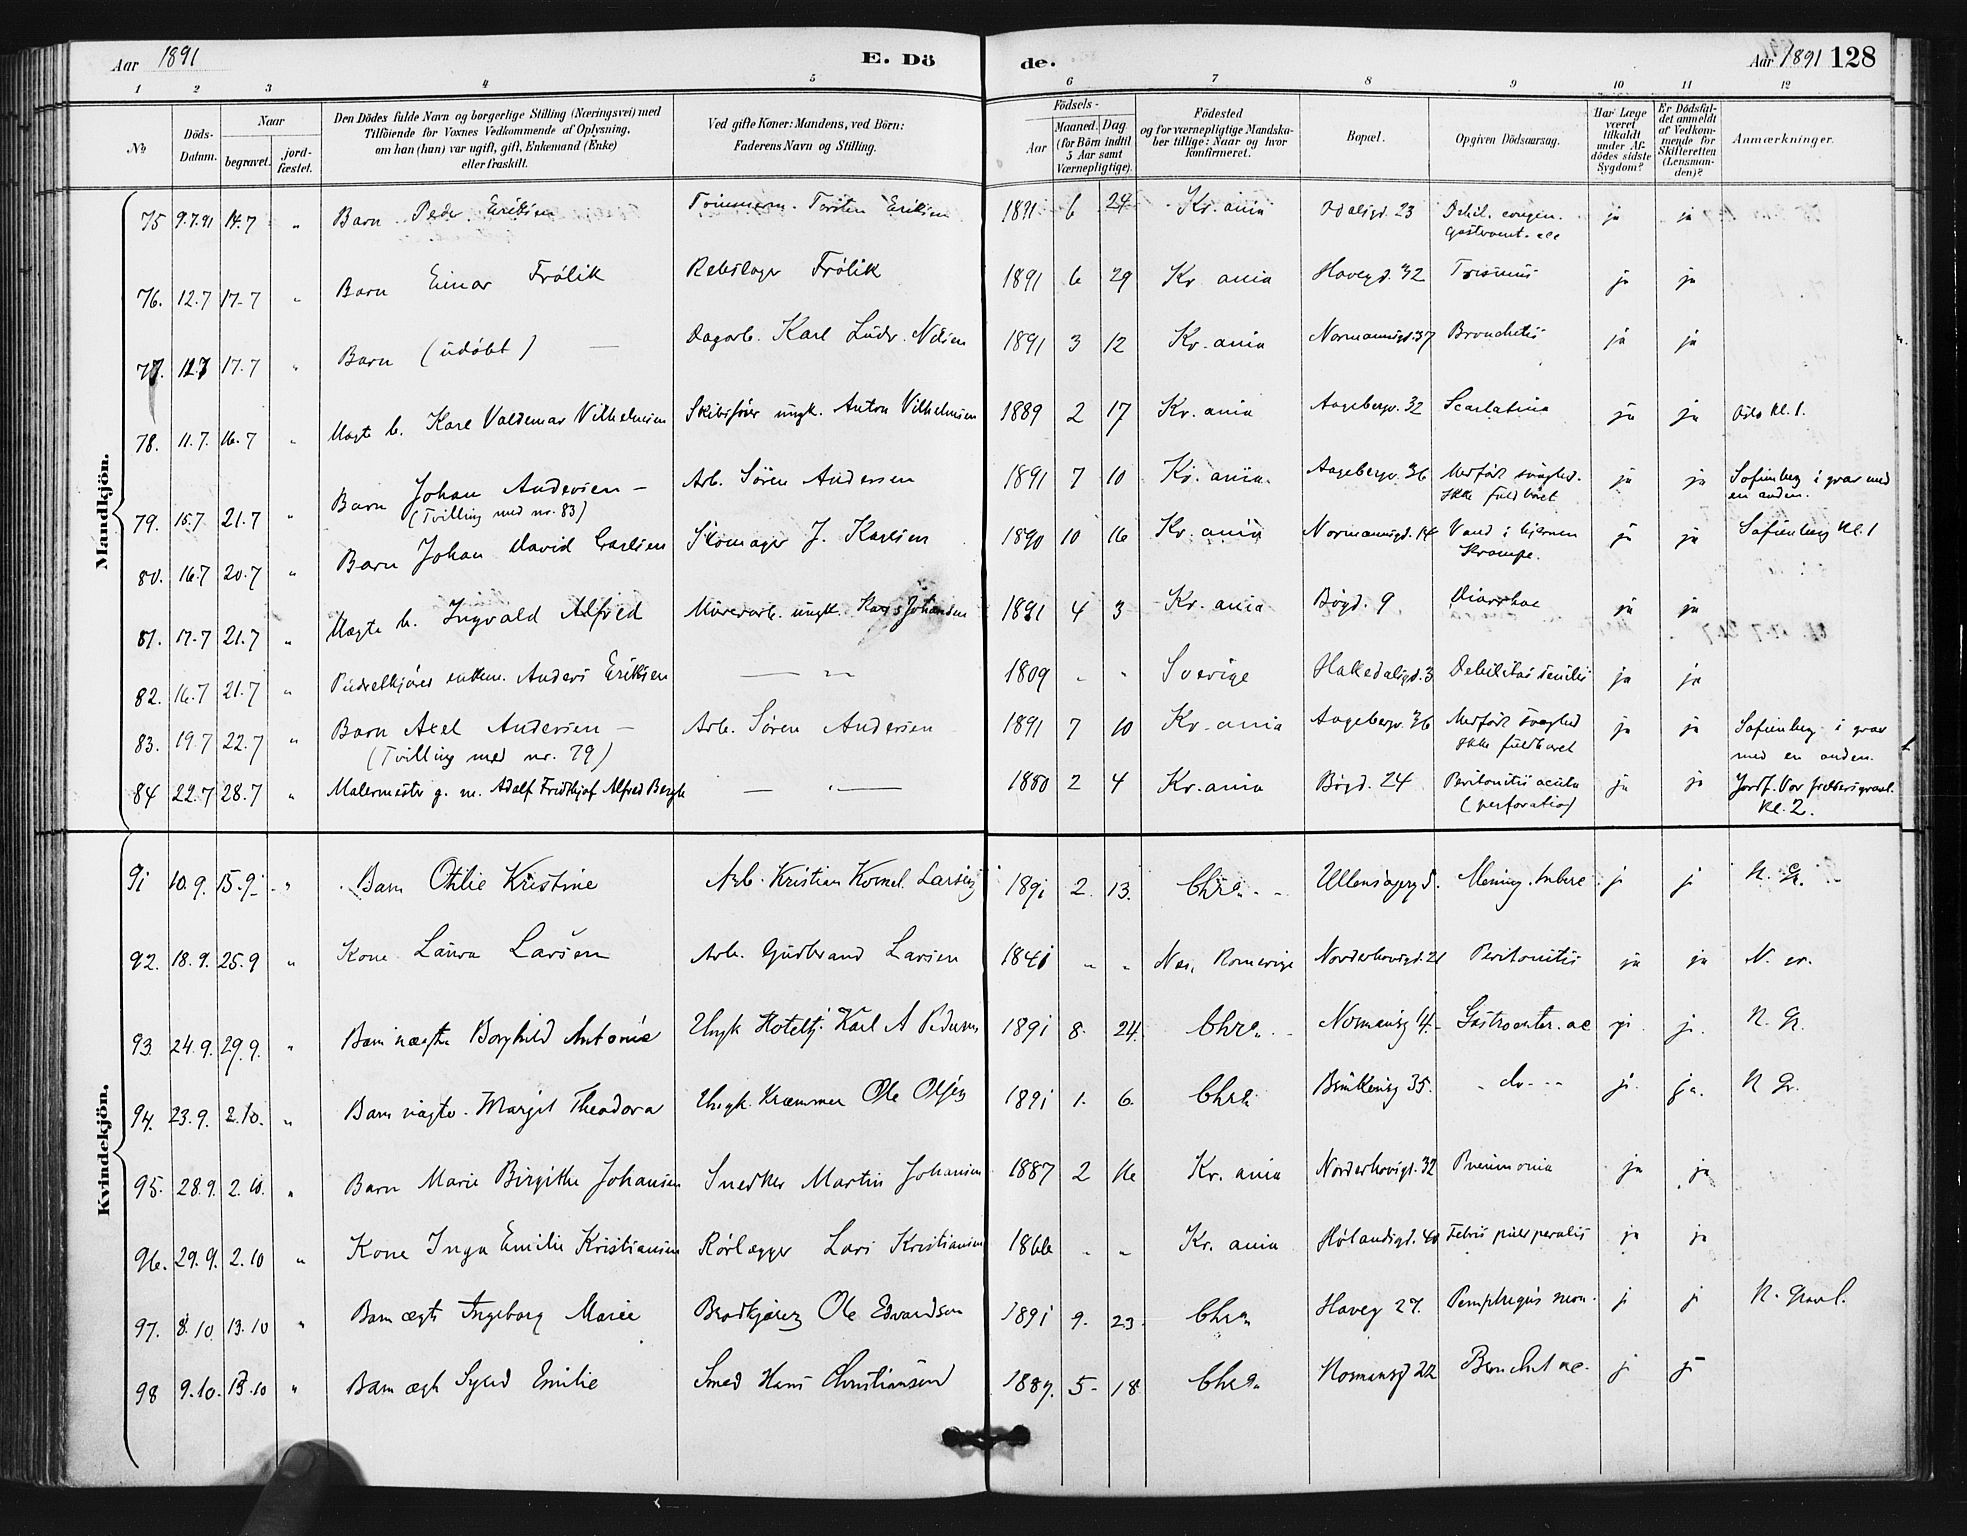 Aar 1891 E. Dö de. Aar 1891 128
1 2 3 4 5 6 7 8 9 10 11 12
No. Döds-Datum. Naar begravet. jordfæstet. Den Dödes fulde Navn og borgerlige Stilling (Næringsvei) med Tilföiende for Voxnes Vedkommende af Oplysning, om han (hun) var ugift, gift, Enkemand (Enke) eller fraskilt. Ved gifte Koner: Mandens, ved Börn: Faderens Navn og Stilling. Födsels- Aar Maaned. Dag (for Börn indtil 5 Aar samt Værnepligtige). Födested og for værnepligtige Mandskaber tillige: Naar og hvor konfirmeret. Bopæl. Opgiven Dödsaarsag. Har Læge været tilkaldt under Afdödes sidste Sygdom? Er Dödsfaldet anmeldt af Vedkommende for Skifteretten (Lensmanden)? Anmærkninger.
Mandkjön.
75 9.7.91 14.7 " Barn Peder Eriksen Tömmerm. Torsten Eriksen 1891 6 24 Kr.ania Odalsgd. 23 Debil. congen. ja ja
Gastroent. ac
76. 12.7 17.7 " Barn Einar Frölik Rebslager Frölik 1891 6 29 Kr.ania Havegd. 32 Trismus ja ja
77. 12.7 17.7 " Barn (udöbt) — Dagarb. Karl Ludv. Nilsen 1891 3 12 Kr.ania Normannsgd. 37 Bronchitis ja ja
78. 11.7. 16.7 " Uægte b. Karl Valdemar Vilhelmsen Skibsförer ungk. Anton Vilhelmsen 1889 2 17 Kr.ania Aagebergv. 32 Scarlatina ja ja Oslo kl. 1.
79. 15.7 21.7 " Barn Johan Andersen — Arb. Sören Andersen 1891 7 10 Kr.ania. Aagebergv. 36 Medfödt svaghed. ja ja Sofienberg i grav med
(Tvilling med nr. 83) Ikke fuldbaaret en anden.
80. 16.7 20.7 " Barn Johan David Carlsen Skomager J. Karlsen 1890 10 16 Kr.ania Normannsgd. 14 Vand i hjernen ja ja Sofienberg kl. 1
Krampe.
81. 17.7 21.7 " Uægte b. Ingvald Alfred Murerarb. ungk. Hans Johansen 1891 4 3 Kr.ania Bögd. 9 Diarrhoe ja ja
82. 16.7 21.7 " Pudretkjörer enkem. Anders Eriksen — " — 1809 " " Sverige Hakedalsgd. 3 Debilitas senilis ja ja
83. 19.7 22.7 " Barn Axel Andersen — Arb. Sören Andersen 1891 7 10 Kr.ania Aagebergv. 36 Medfödt svaghed ja ja Sofienberg i grav
(Tvilling med nr. 79) Ikke fuldbaaret med en anden.
84 22.7 28.7 " Malermester g. m. Adolf Fridthjof Alfred Bergh — " — 1850 2 4 Kr.ania Bögd. 24 Peritonitis acuta ja ja Jordf. Vor frelsers gravl.
(perforatio) kl. 2.
Kvindekjön.
91 10.9. 15.9. " Barn Othilie Kristine Arb. Kristian Kornel. Larsen 1891 2. 13. Chra. Ullensagerg 5. Mening. tuberc j. j. N. Gr.
92. 18.9. 25.9 " Kone Laura Larsen Arb. Gudbrand Larsen 1841 " " Nes, Romerige Norderhovsgd. 21 Peritonitis ja ja N. gr.
93. 24.9. 29.9. " Barn uægte Borghild Antonie Ungk Hotelkj. Karl A Pedersen 1891 8. 24. Chra. Normansg 14. Gastroenter. ac j. j. N. Gr.
94. 23.9. 2.10. " Barn uægte. Margit Theodora Ungk. Kræmmer Ole Olsen 1891 1. 6. Chra. 35. - do - j. ja. N Gr.
95. 28.9. 2.10. " Barn Marie Birgithe Johansen Snedker Martin Johansen 1887 2 16 Kr.ania Norderhovsgd. 32 Pneumonia ja ja
96. 29.9. 2.10 " Kone Inga Emilie Kristiansen Rörlægger Lars Kristiansen 1866 " " Kr.ania Hölandsgd. 40 Febris puerperalis ja ja
97. 8.10 13.10 " Barn ægte Ingeborg Marie Brödkjörer Ole Edvardsen 1891 9. 23. Chra Haveg 27. Pemphigus neon. j j N. Gravl.
98 9.10. 13.10 " Barn ægte Sigrid Emilie Smed Hans Christiansen 1887. 5. 18. Chra. Normansg 22 Bronchit ac. j j